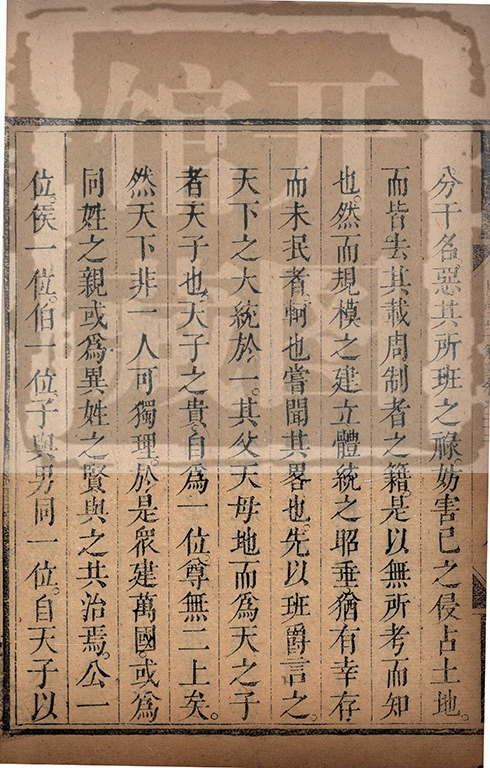 分干名惡其所班之祿妨害已之侵占土地。
而皆去其載周制者之籍。是以無所考而知
也。然而規模之建立體統之昭垂猶有幸存
而未泯者軻也嘗聞其畧也先以班爵言之。
天下之大統於一。其父天母地而爲天之子
者天子也。天子之貴。自爲一位。尊無二上矣。
然天下非一人可獨理。於是衆建萬國。或爲
同姓之親或爲異姓之賢與之共治焉。公一
位。侯一位。伯一位。子與男同一位。自天子以